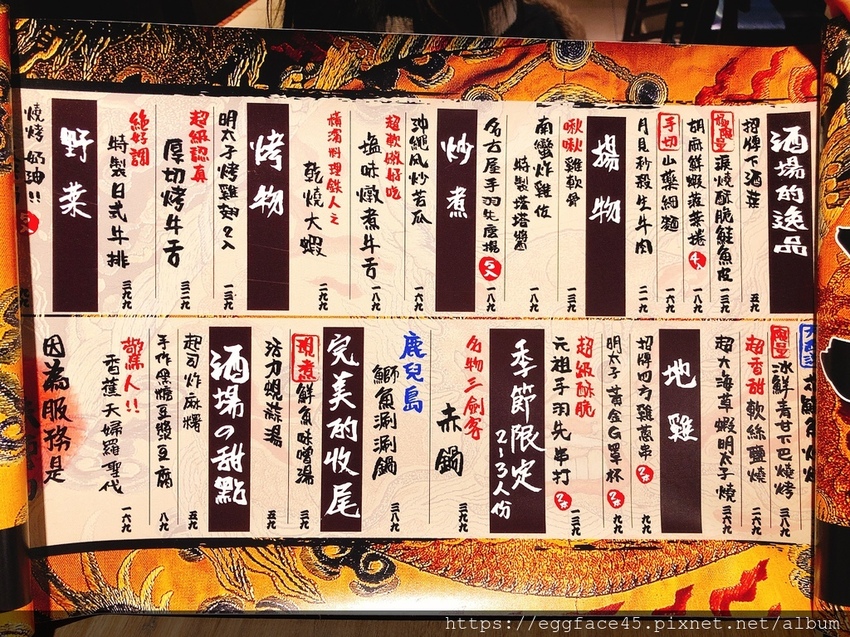 酒場的逸品
招牌下酒菜 五九
浪漫燒酥脆鮭魚皮 一三九
胡麻鮮蝦蔬菜捲 4入 一八九
手切 山藥細麵 一六九
月見秒殺生牛肉 二一九
揚物
啾啾 雞軟骨 一三九
南蠻炸雞佐特製塔塔醬 一八九
名古屋手羽先唐揚 5入 一八九
炒煮
沖繩風炒苦瓜 一六九
超軟嫩好吃 塩味燉煮牛舌 一八九
橫濱料理鉄人之乾燒大蝦 二九九
烤物
明太子烤雞翅2入 一三九
超級認真 厚切烤牛舌 三二九
絕好調 特製日式牛排 三九九
野菜
燒烤 奶油!! 5入
冰鮮青甘下巴燒烤 三八九
超香甜 軟絲鹽燒 二六九
超大海草蝦明太子燒 三六九
地雞
招牌四方雞蔥串 2本 九九
明太子黃金G罩杯 2本 九九
超級酥脆 元祖手羽先串打 2本 一三九
季節限定 2~3人份
名物三劍客 赤鍋 三九九
鹿兒島 鰤魚涮涮鍋 三八九
完美的收尾
現煮 鮮魚味噌湯 三九
活力蜆蒜湯 五九
酒場の甜點
起司炸麻糬 五九
手作黑糖豆漿豆腐 八九
驚人!! 香蕉天婦羅聖代 一六九
因為服務是
https://eggface45.pixnet.net/album